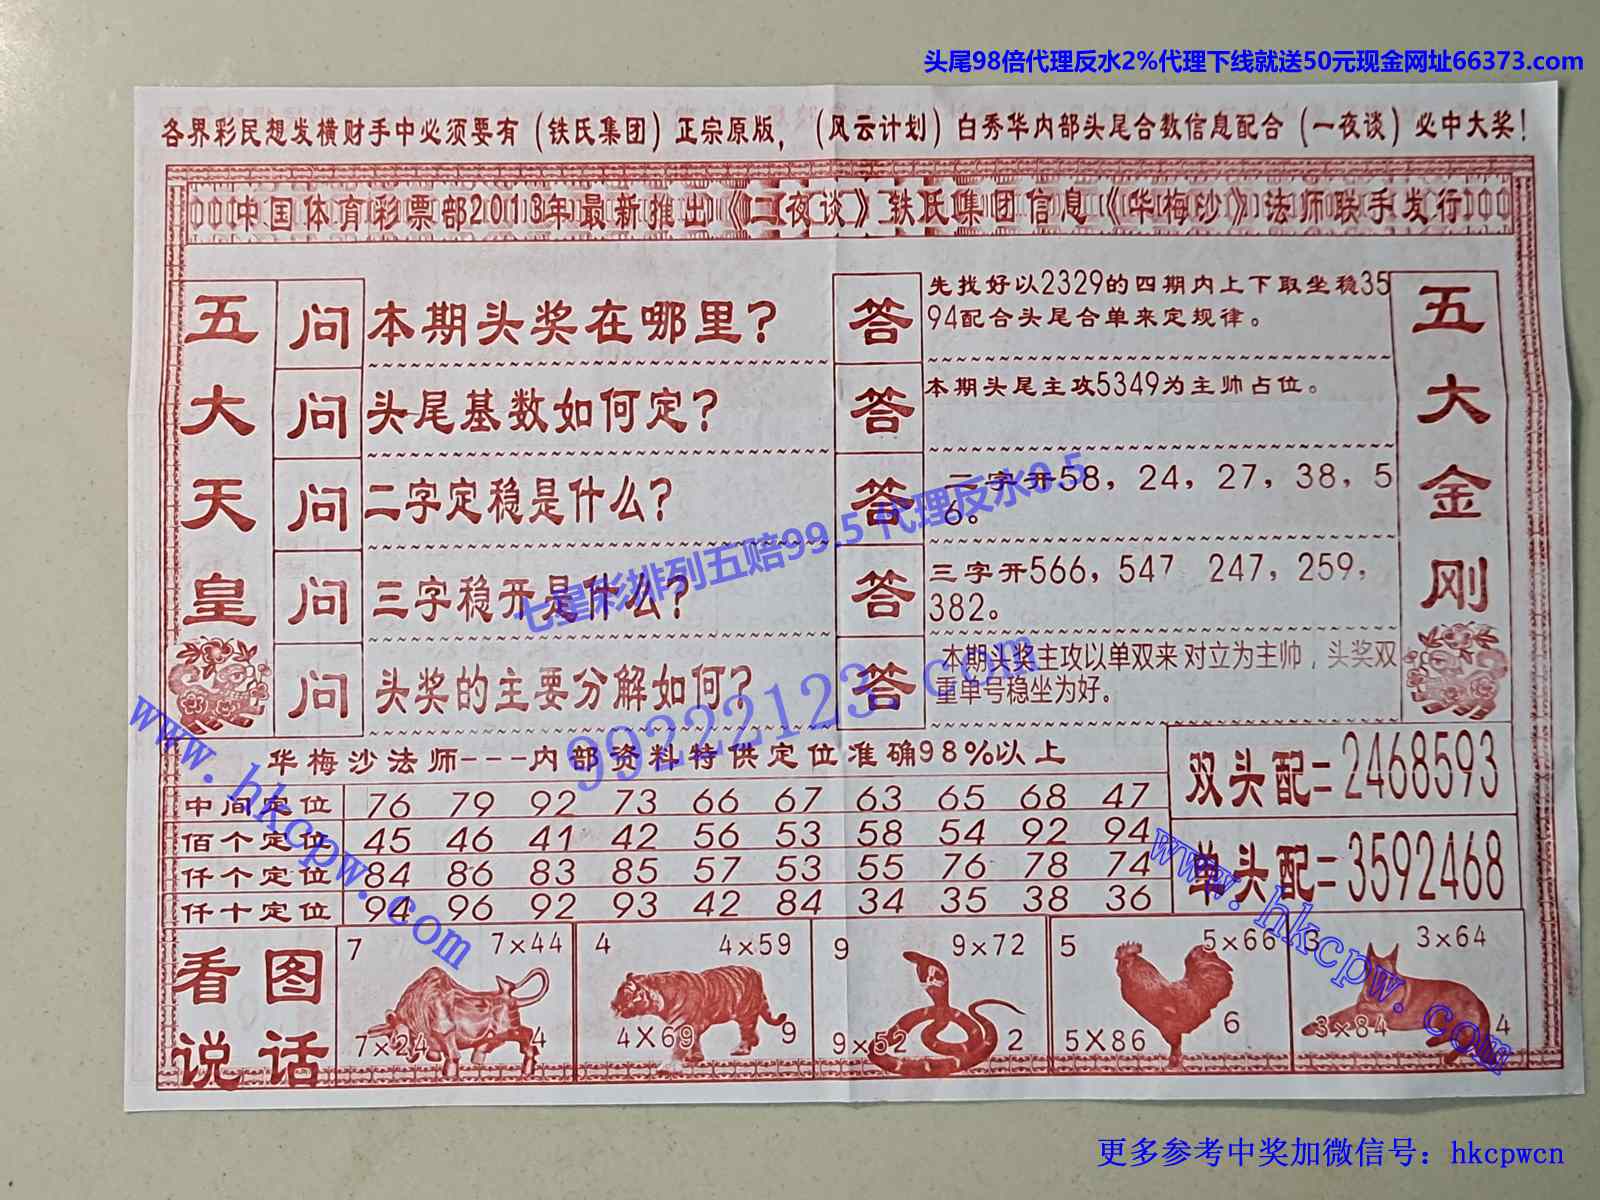 头尾98倍代理反水2%代理下线就送50元现金网址66373.com
各界彩民想发横财手中必须要有（铁氏集团）正宗原版，（风云计划）白秀华内部头尾合数信息配合（一夜谈）必中大奖！
中国体育彩票部2013年最新推出《二夜谈》铁氏集团信息《华梅沙》法师联手发行
五大天皇
问 本期头奖在哪里？
答 先找好以2329的四期内上下取坐稳35
94配合头尾合单来定规律。
问 头尾基数如何定？
答 本期头尾主攻5349为主帅占位。
问 二字定稳是什么？
答 二字开58，24，27，38，5
6。
问 三字稳开是什么？
答 三字开566，547 247，259，
382。
问 头奖的主要分解如何？
答 本期头奖主攻以单双来 对立为主帅，头奖双
重单号稳坐为好。
五大金刚
七星彩排列五赔99.5 代理反水0.5
99222123.com
www.hkcpw.com
华梅沙法师---内部资料特供定位准确98%以上
中间定位 76 79 92 73 66 67 63 65 68 47
佰个定位 45 46 41 42 56 53 58 54 92 94
仟个定位 84 86 83 85 57 53 55 76 78 74
仟十定位 94 96 92 93 42 84 34 35 38 36
双头配=2468593
单头配=3592468
www.hkcpw.com
看图
说话
7 7×44
7×24 4
4 4×59
4X69 9
9 9×72
9×52 2
5 5×66
5X86 6
3 3×64
3×84 4
更多参考中奖加微信号：hkcpwcn